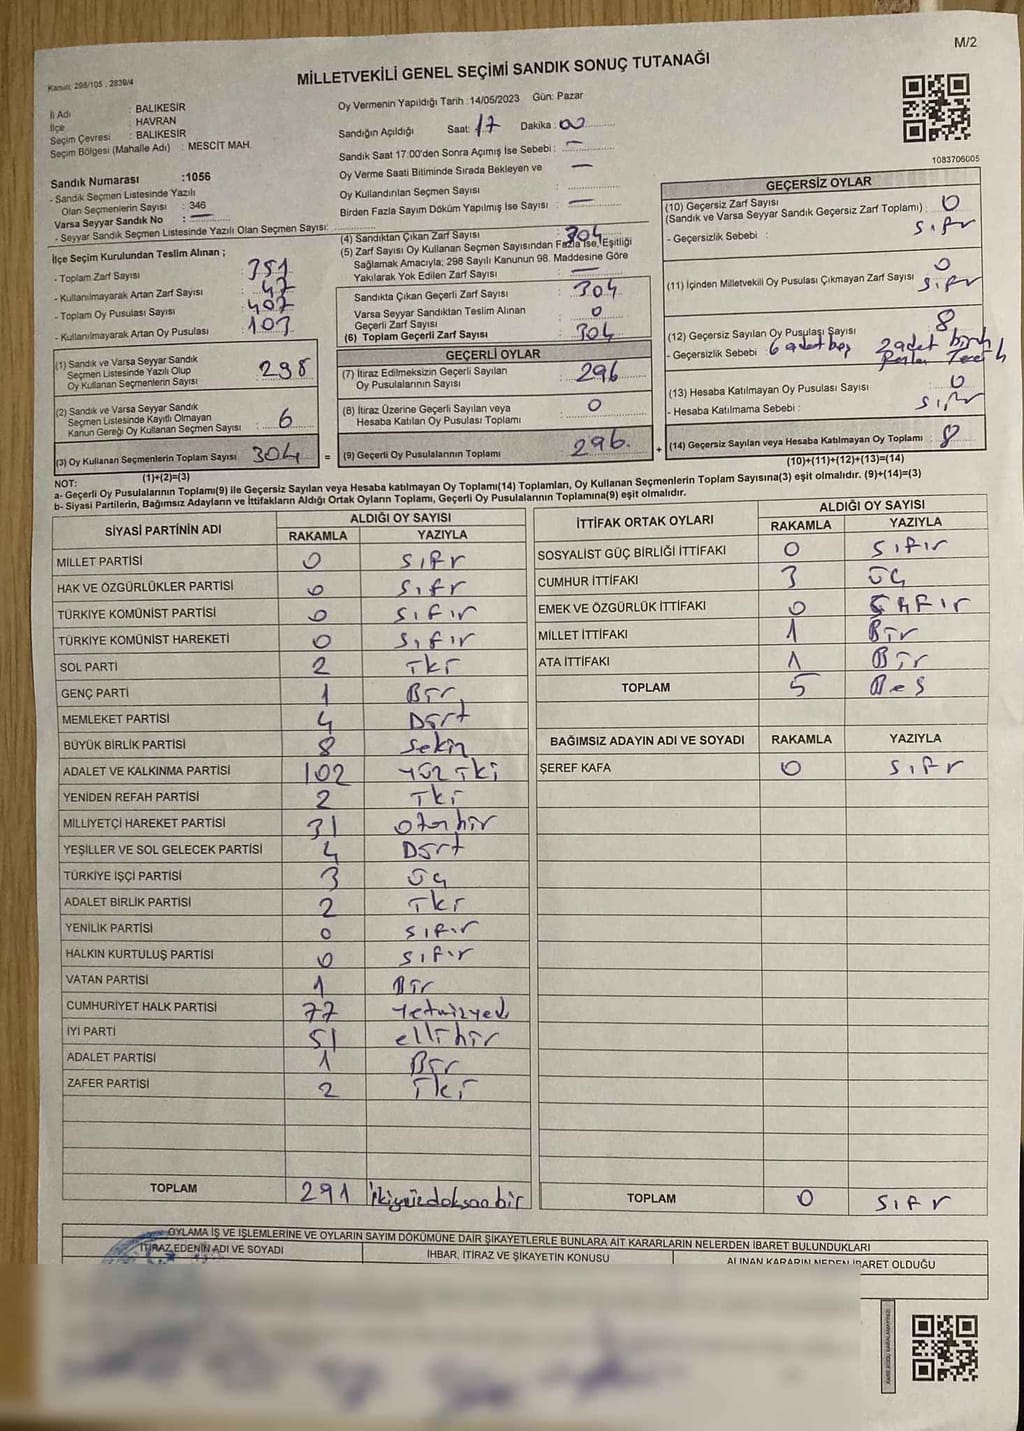 M/2
Kanun: 298/105 , 2839/4
MİLLETVEKİLİ GENEL SEÇİMİ SANDIK SONUÇ TUTANAĞI
İl Adı : BALIKESİR
İlçe : HAVRAN
Seçim Çevresi : BALIKESİR
Seçim Bölgesi (Mahalle Adı) : MESCİT MAH.
Sandık Numarası :1056
- Sandık Seçmen Listesinde Yazılı
Olan Seçmenlerin Sayısı : 346
Varsa Seyyar Sandık No : —
- Seyyar Sandık Seçmen Listesinde Yazılı Olan Seçmen Sayısı:
Oy Vermenin Yapıldığı Tarih :14/05/2023 Gün: Pazar
Sandığın Açıldığı Saat: 17 Dakika : 00
Sandık Saat 17:00'den Sonra Açımış İse Sebebi : —
Oy Verme Saati Bitiminde Sırada Bekleyen ve —
Oy Kullandırılan Seçmen Sayısı :
Birden Fazla Sayım Döküm Yapılmış İse Sayısı : —
1083706005
İlçe Seçim Kurulundan Teslim Alınan ;
- Toplam Zarf Sayısı : 351
- Kullanılmayarak Artan Zarf Sayısı : 47
- Toplam Oy Pusulası Sayısı : 407
- Kullanılmayarak Artan Oy Pusulası : 103
(1) Sandık ve Varsa Seyyar Sandık
Seçmen Listesinde Yazılı Olup
Oy Kullanan Seçmenlerin Sayısı : 298
(2) Sandık ve Varsa Seyyar Sandık
Seçmen Listesinde Kayıtlı Olmayan
Kanun Gereği Oy Kullanan Seçmen Sayısı : 6
(3) Oy Kullanan Seçmenlerin Toplam Sayısı 304
(1)+(2)=(3)
(4) Sandıktan Çıkan Zarf Sayısı : 304
(5) Zarf Sayısı Oy Kullanan Seçmen Sayısından Fazla İse, Eşitliği
Sağlamak Amacıyla; 298 Sayılı Kanunun 98. Maddesine Göre
Yakılarak Yok Edilen Zarf Sayısı : —
Sandıkta Çıkan Geçerli Zarf Sayısı : 304
Varsa Seyyar Sandıktan Teslim Alınan
Geçerli Zarf Sayısı : 0
(6) Toplam Geçerli Zarf Sayısı : 304
GEÇERLİ OYLAR
(7) İtiraz Edilmeksizin Geçerli Sayılan
Oy Pusulalarının Sayısı : 296
(8) İtiraz Üzerine Geçerli Sayılan veya
Hesaba Katılan Oy Pusulası Toplamı : 0
= (9) Geçerli Oy Pusulalarının Toplamı : 296.
GEÇERSİZ OYLAR
(10) Geçersiz Zarf Sayısı 0
(Sandık ve Varsa Seyyar Sandık Geçersiz Zarf Toplamı) :
- Geçersizlik Sebebi : sıfır
(11) İçinden Milletvekili Oy Pusulası Çıkmayan Zarf Sayısı : 0
sıfır
(12) Geçersiz Sayılan Oy Pusulaşı Sayısı : 8
- Geçersizlik Sebebi : 6 adet boş 2 adet
(13) Hesaba Katılmayan Oy Pusulası Sayısı : 0
- Hesaba Katılmama Sebebi : sıfır
+ (14) Geçersiz Sayılan veya Hesaba Katılmayan Oy Toplamı : 8
(10)+(11)+(12)+(13)=(14)
NOT:
a- Geçerli Oy Pusulalarının Toplamı(9) ile Geçersiz Sayılan veya Hesaba katılmayan Oy Toplamı(14) Toplamları, Oy Kullanan Seçmenlerin Toplam Sayısına(3) eşit olmalıdır. (9)+(14)=(3)
b- Siyasi Partilerin, Bağımsız Adayların ve İttifakların Aldığı Ortak Oyların Toplamı, Geçerli Oy Pusulalarının Toplamına(9) eşit olmalıdır.
SİYASİ PARTİNİN ADI ALDIĞI OY SAYISI
RAKAMLA YAZIYLA
MİLLET PARTİSİ 0 sıfır
HAK VE ÖZGÜRLÜKLER PARTİSİ 0 sıfır
TÜRKİYE KOMÜNİST PARTİSİ 0 sıfır
TÜRKİYE KOMÜNİST HAREKETİ 0 sıfır
SOL PARTİ 2 İki
GENÇ PARTİ 1 Bir
MEMLEKET PARTİSİ 4 Dört
BÜYÜK BİRLİK PARTİSİ 8 Sekiz
ADALET VE KALKINMA PARTİSİ 102 Yüz iki
YENİDEN REFAH PARTİSİ 2 İki
MİLLİYETÇİ HAREKET PARTİSİ 31 otuzbir
YEŞİLLER VE SOL GELECEK PARTİSİ 4 Dört
TÜRKİYE İŞÇİ PARTİSİ 3 üç
ADALET BİRLİK PARTİSİ 2 İki
YENİLİK PARTİSİ 0 sıfır
HALKIN KURTULUŞ PARTİSİ 0 sıfır
VATAN PARTİSİ 1 Bir
CUMHURİYET HALK PARTİSİ 77 Yetmişyedi
İYİ PARTİ 51 ellibir
ADALET PARTİSİ 1 Bir
ZAFER PARTİSİ 2 İki
TOPLAM 291 ikiyüzdoksanbir
İTTİFAK ORTAK OYLARI ALDIĞI OY SAYISI
RAKAMLA YAZIYLA
SOSYALİST GÜÇ BİRLİĞİ İTTİFAKI 0 sıfır
CUMHUR İTTİFAKI 3 üç
EMEK VE ÖZGÜRLÜK İTTİFAKI 0 sıfır
MİLLET İTTİFAKI 1 Bir
ATA İTTİFAKI 1 Bir
TOPLAM 5 Beş
BAĞIMSIZ ADAYIN ADI VE SOYADI RAKAMLA YAZIYLA
ŞEREF KAFA 0 sıfır
TOPLAM 0 sıfır
OYLAMA İŞ VE İŞLEMLERİNE VE OYLARIN SAYIM DÖKÜMÜNE DAİR ŞİKAYETLERLE BUNLARA AİT KARARLARIN NELERDEN İBARET BULUNDUKLARI
İTİRAZ EDENİN ADI VE SOYADI İHBAR, İTİRAZ VE ŞİKAYETİN KONUSU ALINAN KARARIN NEDEN İBARET OLDUĞU